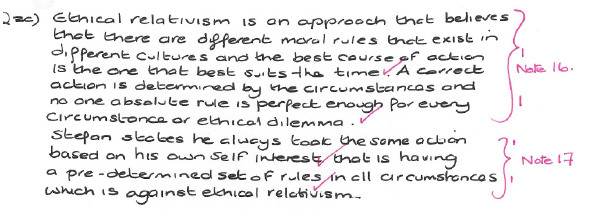 2 a c) Ethical relativism is an approach that believes
that there are different moral rules that exist in
different cultures and the best course of action
is the one that best suits the time. A correct
Note 16.
action is determined by the circumstances and
no one absolute rule is perfect enough for every
1
circumstance or ethical dilemma.
Stefan states he always took the same action
based on his own self interest, that is having
Note 17
a pre-determined set of rules in all circumstances
which is against ethical relativism.